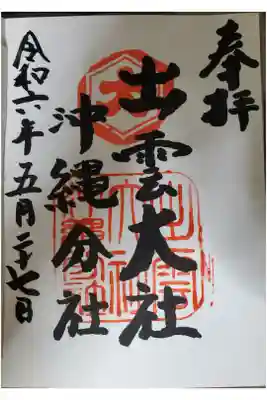 奉拝
出雲大社
沖縄分社
令和六年五月二十七日